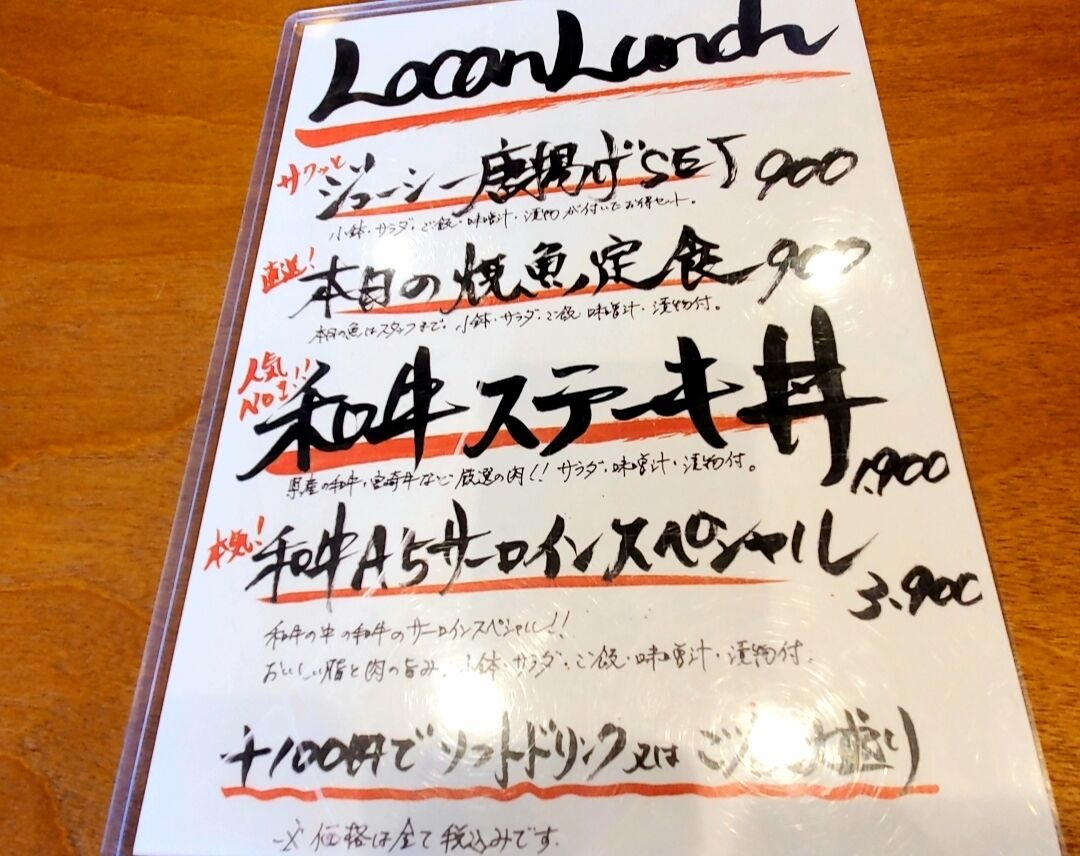 Locan Lunch
サクッと
ジューシー唐揚げSET 900
小鉢・サラダ・ご飯・味噌汁・漬物が付いたお得セット。
直送!
本日の焼魚定食 900
本日の魚はスタッフまで。小鉢・サラダ・ご飯 味噌汁・漬物付。
人気NO1!!
和牛ステーキ丼 1.900
県産の和牛・宮崎牛など厳選の肉!! サラダ・味噌汁・漬物付。
本気!
和牛A5サーロインスペシャル 3.900
和牛の中の和牛のサーロインスペシャル!!
おいしい脂と肉の旨み。小鉢・サラダ・ご飯・味噌汁・漬物付.
+100円でソフトドリンク又は ご 大盛り
※価格は全て税込みです.